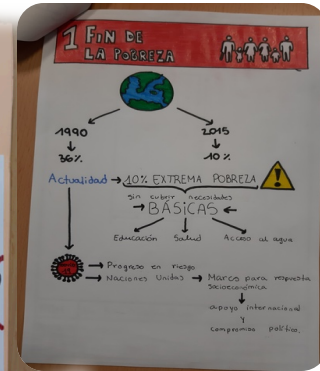 1 FIN DE
LA POBREZA
1990
2015
36%
10%
Actualidad → 10% EXTREMA POBREZA
sin cubrir necesidades
→ BÁSICAS ←
Educación Salud Acceso al agua
→ Progreso en riesgo
→ Naciones Unidas → Marco para respuesta
socioeconómica
apoyo internacional
y
compromiso político.